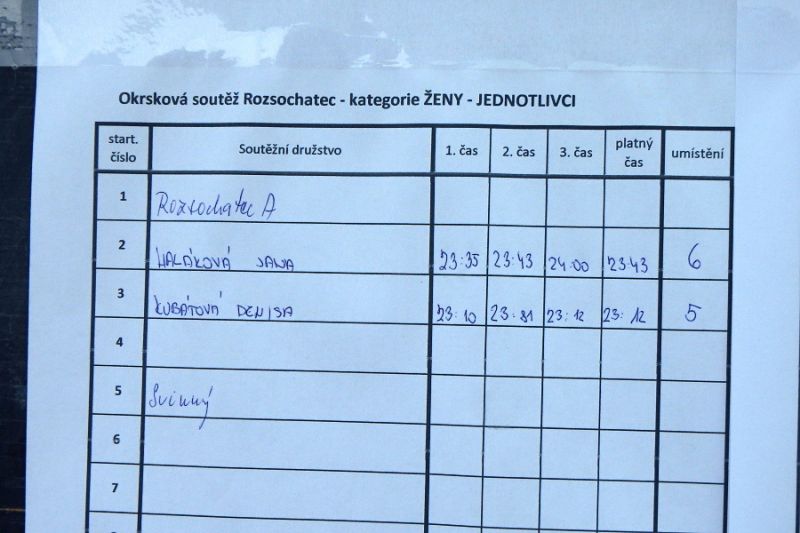 Okrsková soutěž Rozsochatec - kategorie ŽENY - JEDNOTLIVCI
start. číslo Soutěžní družstvo 1. čas 2. čas 3. čas platný čas umístění
1 Rozsochatec A
2 HALÁKOVÁ JANA 23:35 23:43 24:00 23:43 6
3 KUBÁTOVÁ DENISA 23:10 23:81 23:12 23:12 5
4
5 Svinný
6
7